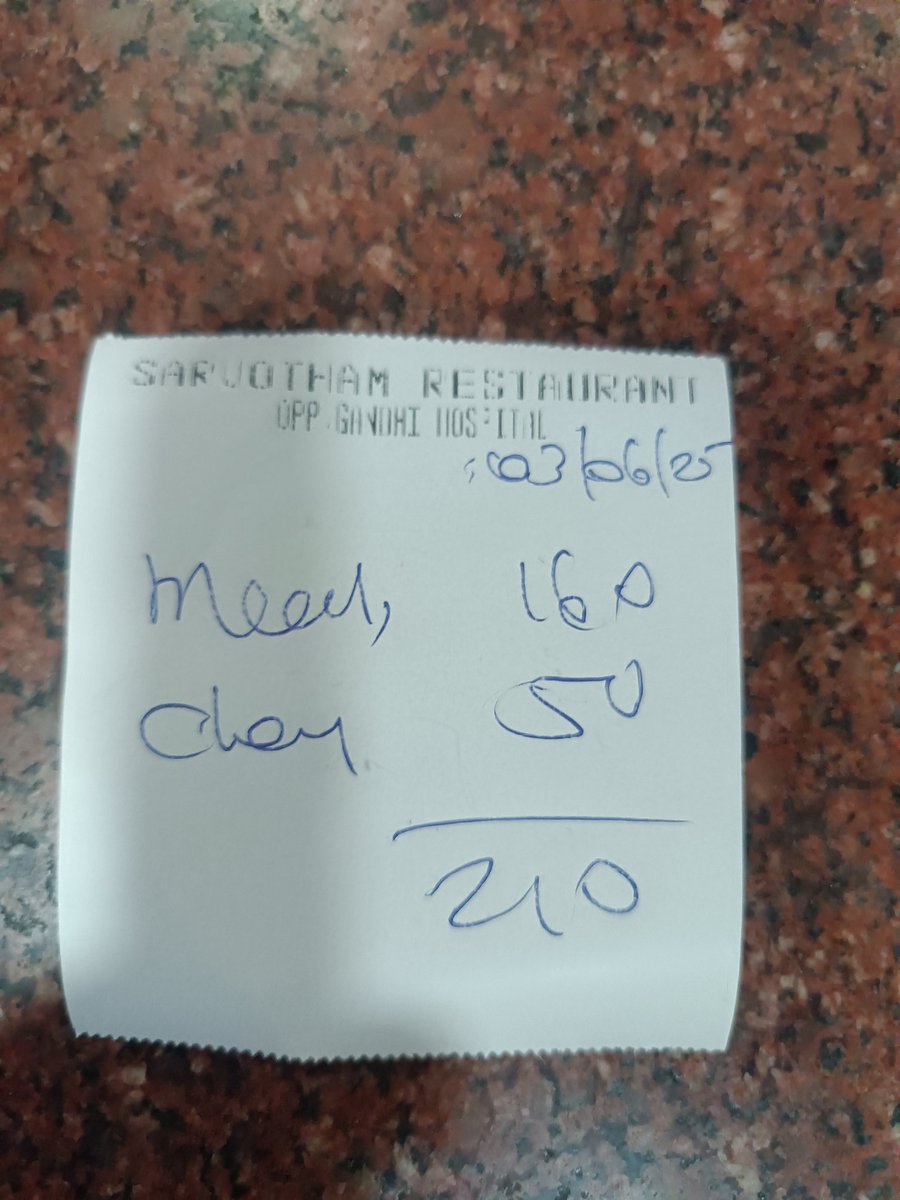 SARVOTHAM RESTAURANT
OPP.GANDHI HOSPITAL
03/06/25
Meal, 160
Chay 50
210